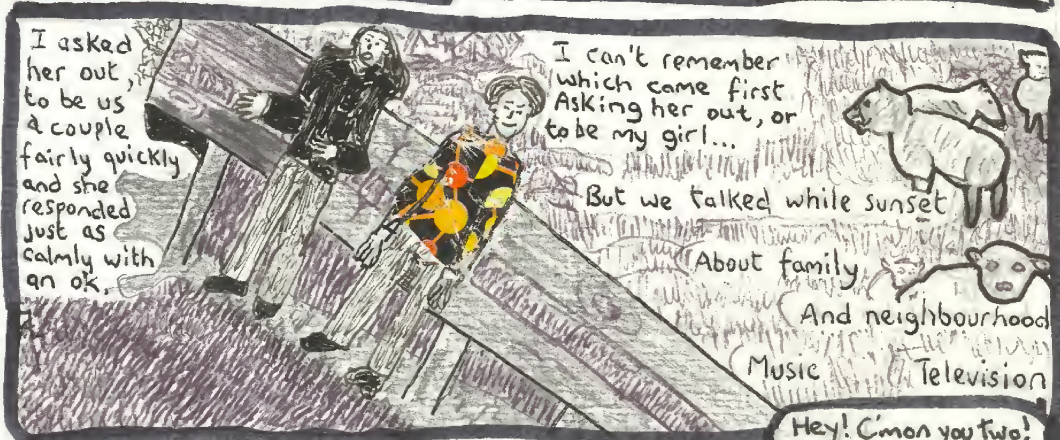 I asked
her out,
to be us
a couple
fairly quickly
and she
responded
just as
calmly with
an ok.
I can't remember
which came first
Asking her out, or
to be my girl...
But we talked while sunset
About family
And neighbourhood
Music Television
Hey! C'mon you two!